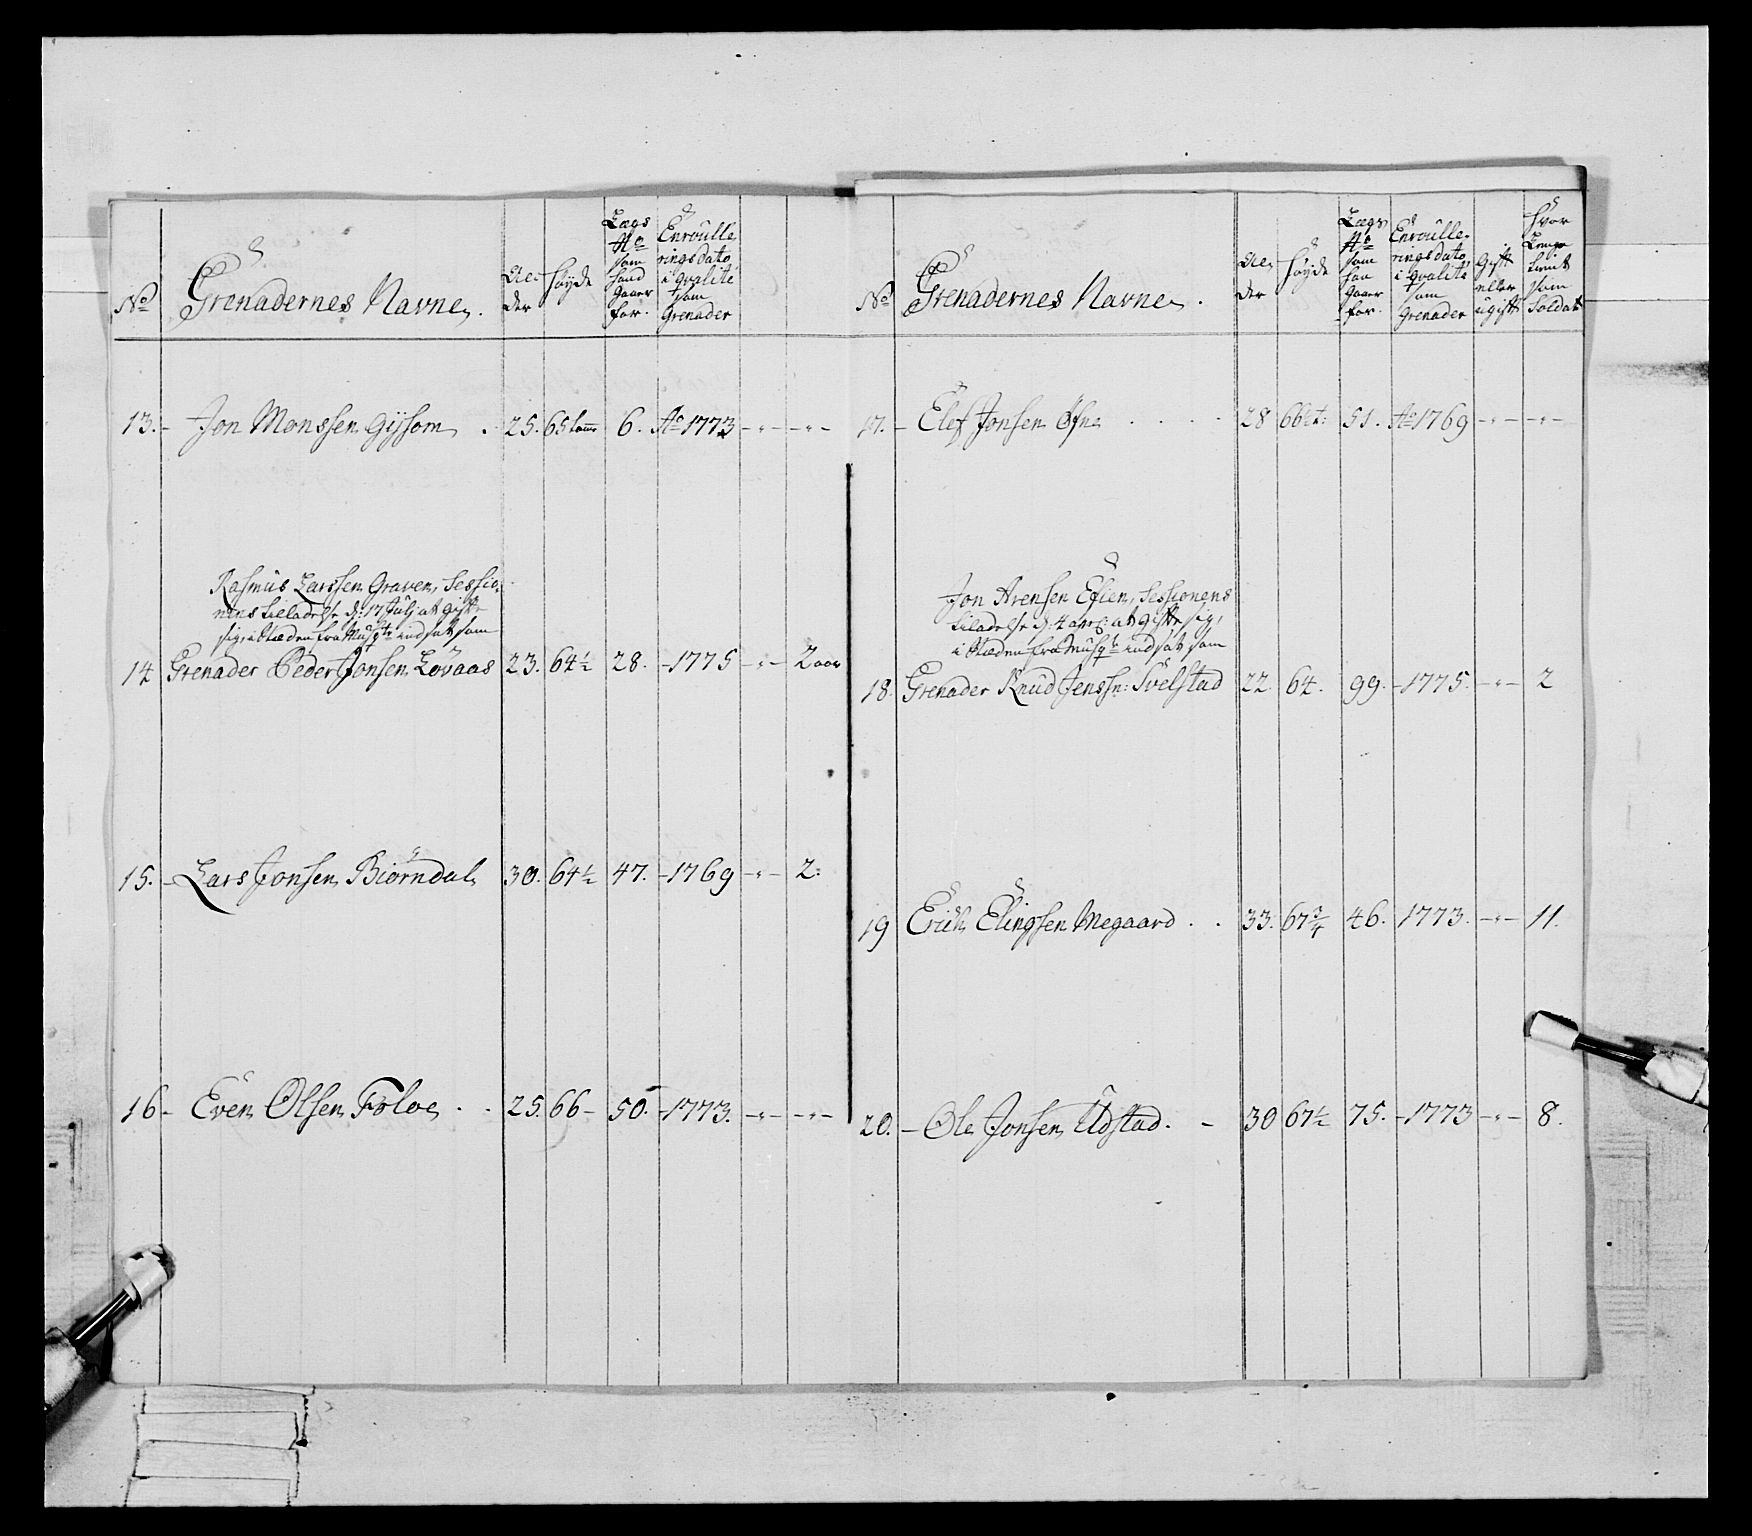 No
Grenadernes Navne.
Al-
der
høyde
Lægs
No
som
hand
gaaer
for.
Enroulle
rings dato
i qvalité
som
Grenader
13. - Jon Monssen Gijsom . 25. 65 tomr 6. Ao 1773 -"- -"-
Rasmus Larssen Graven, Sessio-
nens tilladelse d: 17 Julj at gifte
sig, i Stæden fra Musqtr indsat som
14 Grenader Peder Jonsen Løvaas 23. 64½ 28. -1775 -"- 2 aar
15. - Lars Jonsen Biørndal 30. 64½ 47. -1769 -"- 2:
16 - Even Olsen Foloe . . 25. 66 - 50. -1773. -"- -"-
No
Grenadernes Navne .
Al-
der
høyde
Lægs
No
som
han
gaaer
for.
Enroulle-
rings dato
i qvalité
som
Grenader
Gift
eller
ugift
hvor
Lenge
tient
som
Soldat
17. - Elef Jonsen Øfne . . . . 28 66 51. Ao 1769 -"- -"-
Jon Arensen Efien, Sessionens
tiladelse d: 4 at gifte sig,
i Stæden fra Musqt indsat som
18. Grenader Knud Jenssn: Svelstad 22. 64. 99. -1775. -"- 2
19 Erich Elingsen Megaard . . 33. 67¾ 46. 1773. -"- 11.
20. - Ole Jonsen Udstad. - 30 67½ 75. -1773 -"- 8.